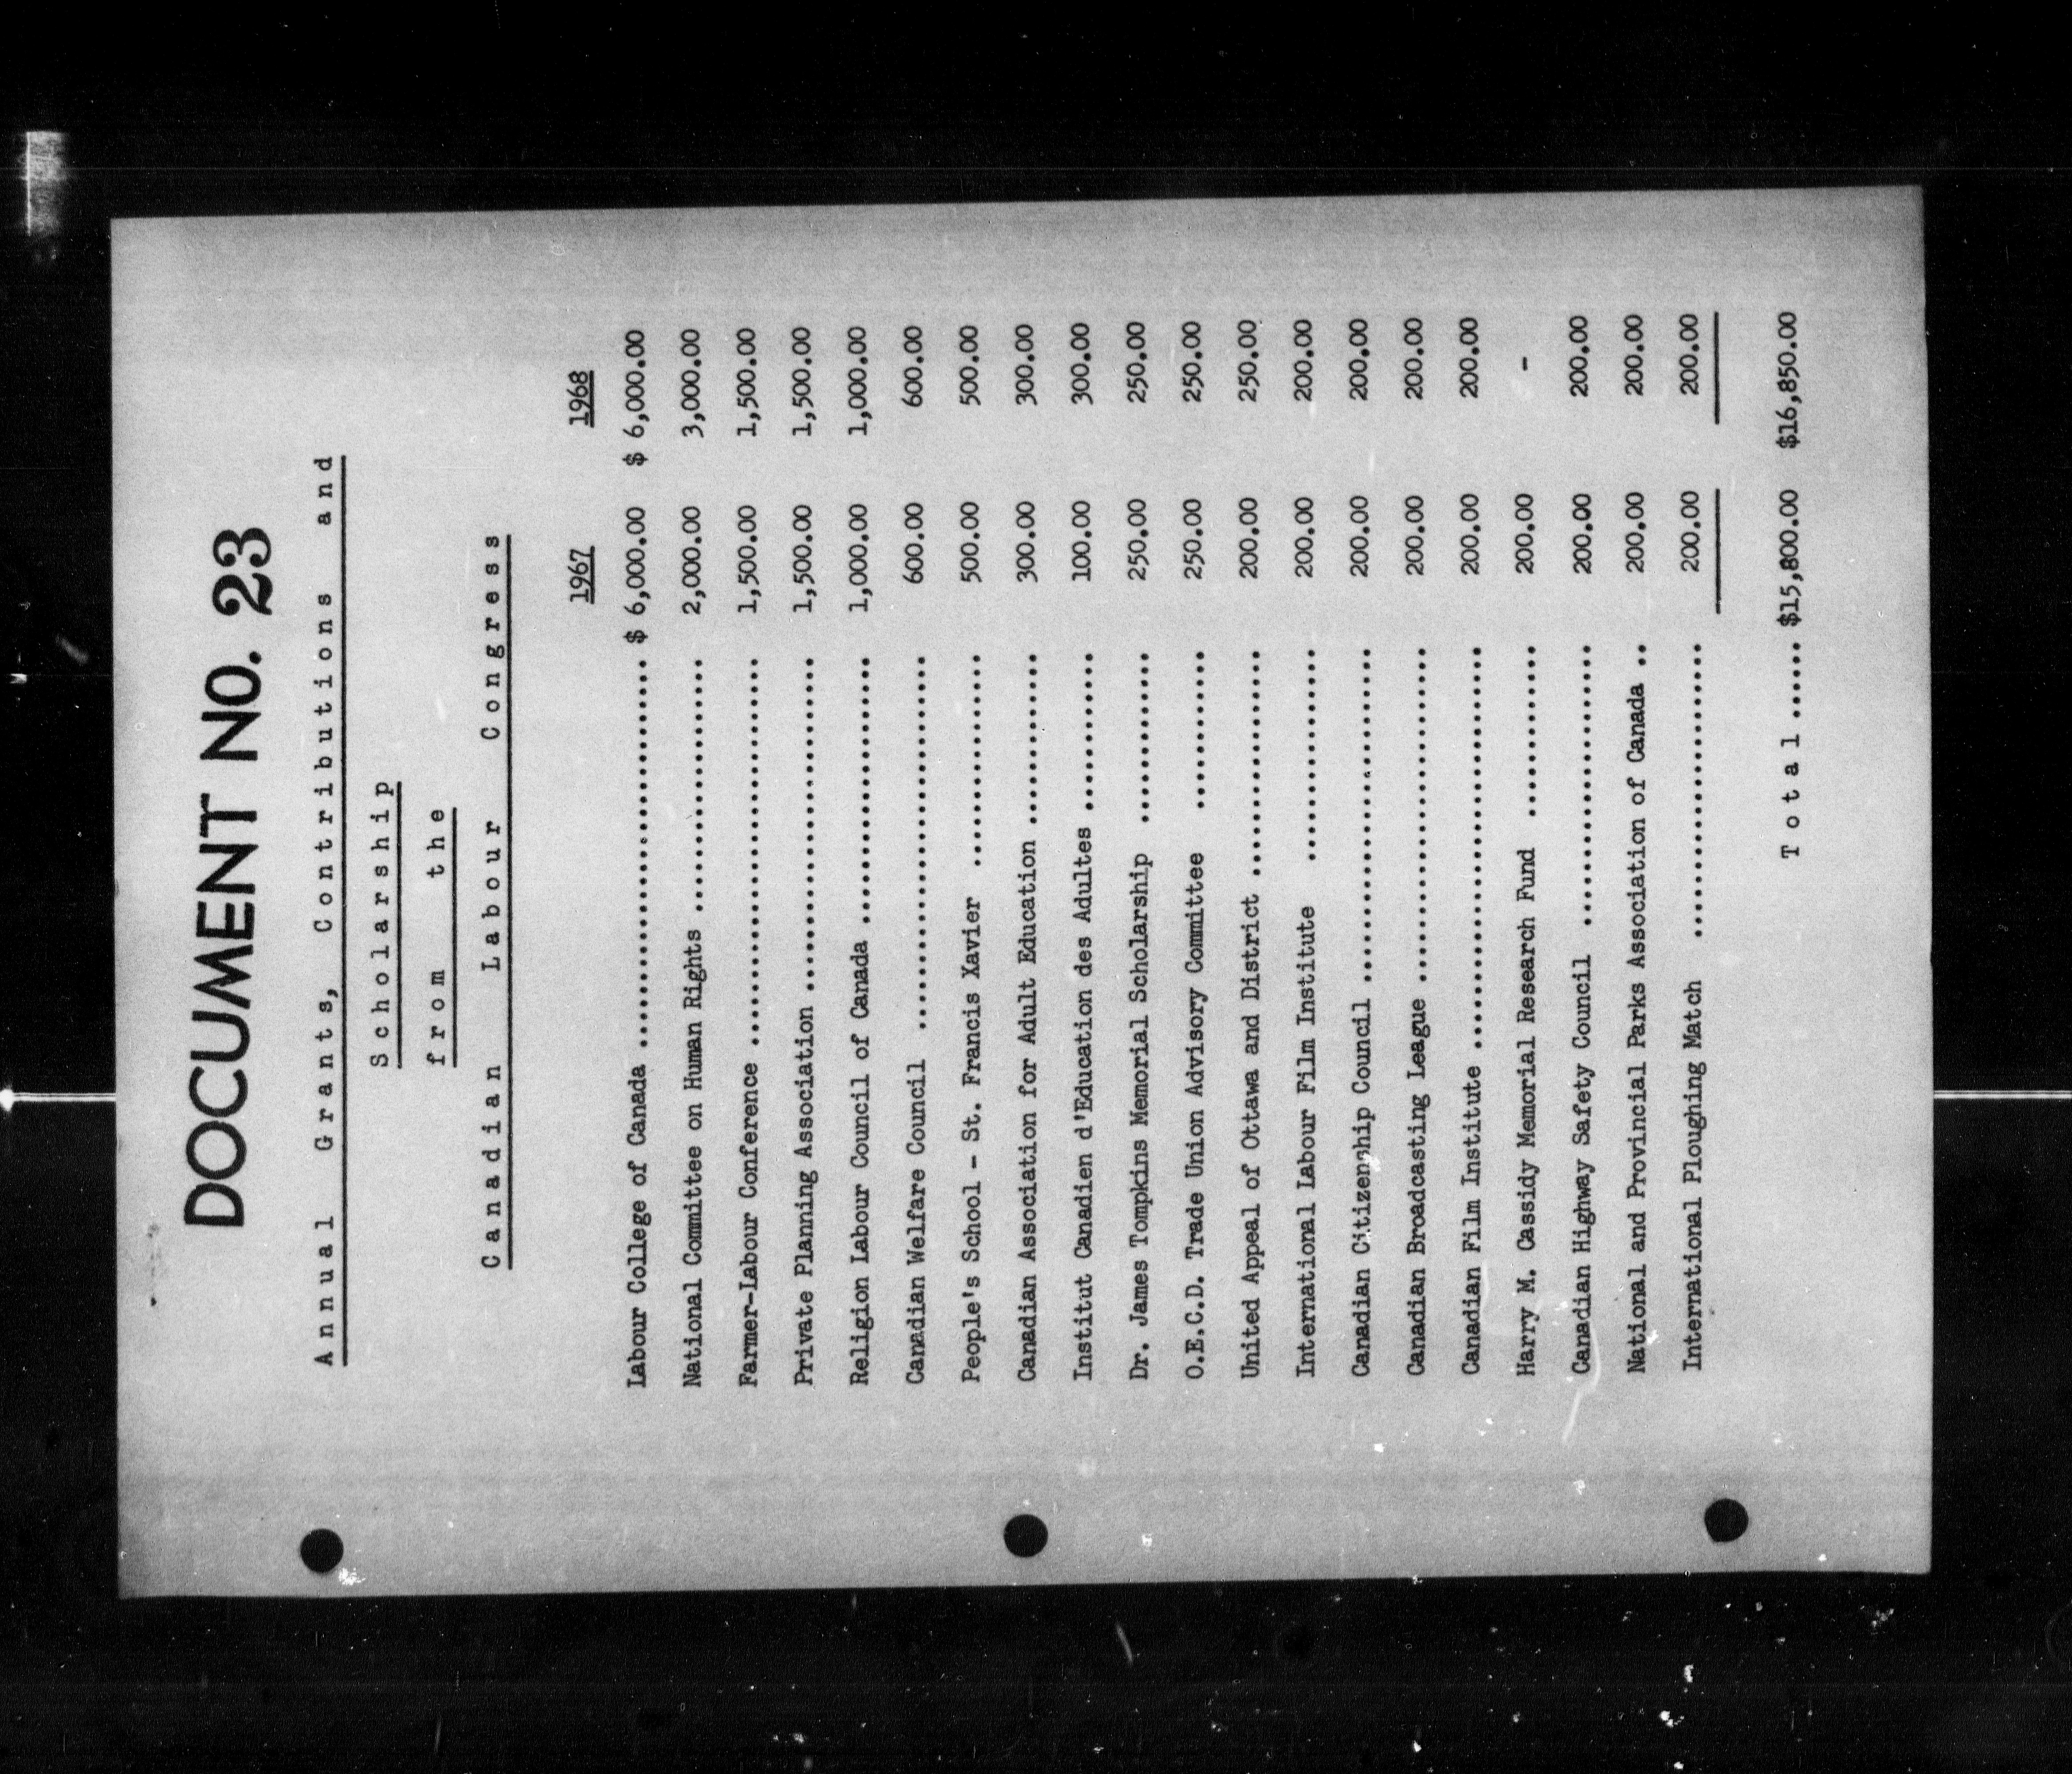 DOCUMENT NO. 23
Annual Grants, Contributions and
Scholarship
from the
Canadian Labour Congress
1967 1968
Labour College of Canada .................................. $ 6,000.00 $ 6,000.00
National Committee on Human Rights ...................... 2,000.00 3,000.00
Farmer-Labour Conference .................................. 1,500.00 1,500.00
Private Planning Association ............................. 1,500.00 1,500.00
Religion Labour Council of Canada ....................... 1,000.00 1,000.00
Canadian Welfare Council ................................. 600.00 600.00
People's School - St. Francis Xavier ................... 500.00 500.00
Canadian Association for Adult Education ............... 300.00 300.00
Institut Canadien d'Education des Adultes .............. 100.00 300.00
Dr. James Tompkins Memorial Scholarship ............... 250.00 250.00
O.E.C.D. Trade Union Advisory Committee .............. 250.00 250.00
United Appeal of Ottawa and District .................... 200.00 250.00
International Labour Film Institute ................... 200.00 200.00
Canadian Citizenship Council ............................. 200.00 200.00
Canadian Broadcasting League ............................. 200.00 200.00
Canadian Film Institute ................................... 200.00 200.00
Harry M. Cassidy Memorial Research Fund ............... 200.00 -
Canadian Highway Safety Council ......................... 200.00 200.00
National and Provincial Parks Association of Canada .. 200.00 200.00
International Ploughing Match .......................... 200.00 200.00
Total ...... $15,800.00 $16,850.00